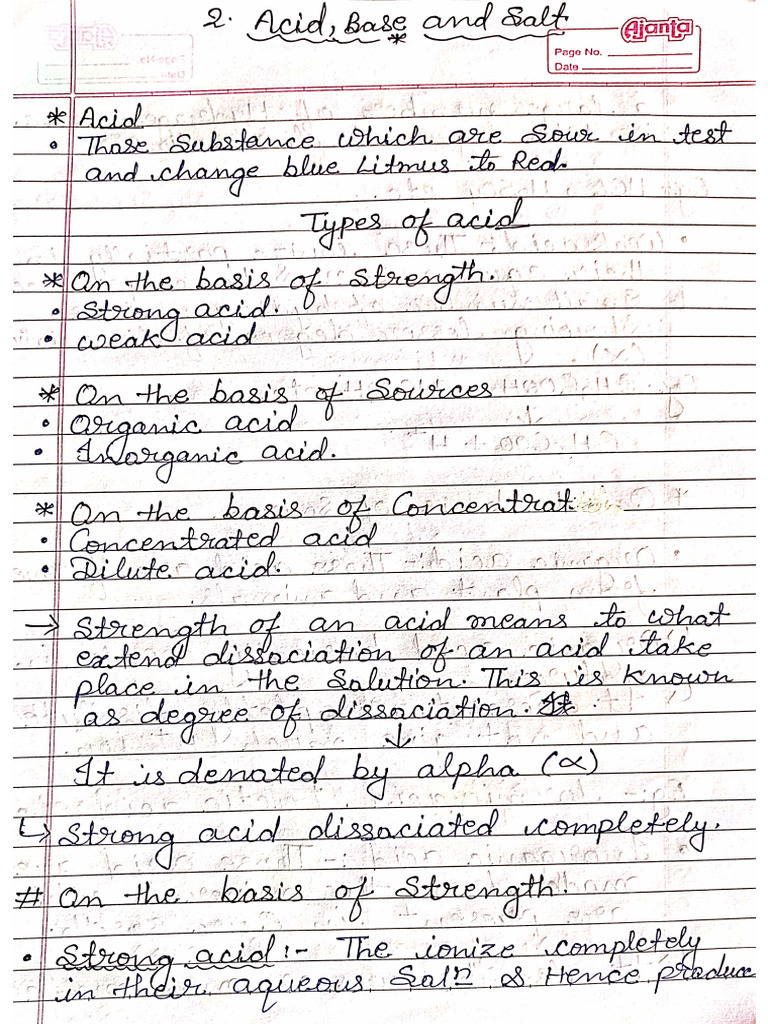 2. Acid, Base and Salt
Ajanta
Page No.
Date
* Acid
• Those Substance which are Sour in test
and change blue Litmus to Red.
Types of acid
* On the basis of Strength.
• Strong acid.
• weak acid
* On the basis of Sources
• Organic acid
• Inorganic acid.
* On the basis of Concentrat
• Concentrated acid
• Dilute acid.
→ Strength of an acid means to what
extend dissaciation of an acid take
place in the Solution. This is known
as degree of dissaciation.
↓
It is denated by alpha (∝)
↳ Strong acid dissaciated completely.
# On the basis of Strength.
• Strong acid :- The ionize completely
in their aqueous Solⁿ & Hence produce